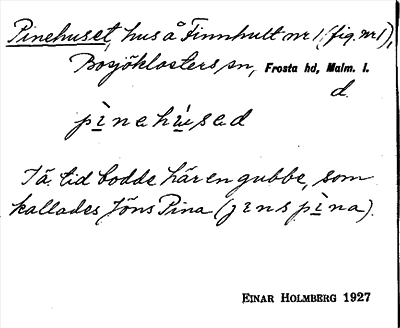 Pinehuset, hus å Finnhult nr 1 (fig. nr 1),
Bosjöklosters sn, Frosta hd, Malm. l.
d.
pìnehúsed
I ä. tid bodde här en gubbe, som
kallades Jöns Pina (jɪns pìna).
EINAR HOLMBERG 1927